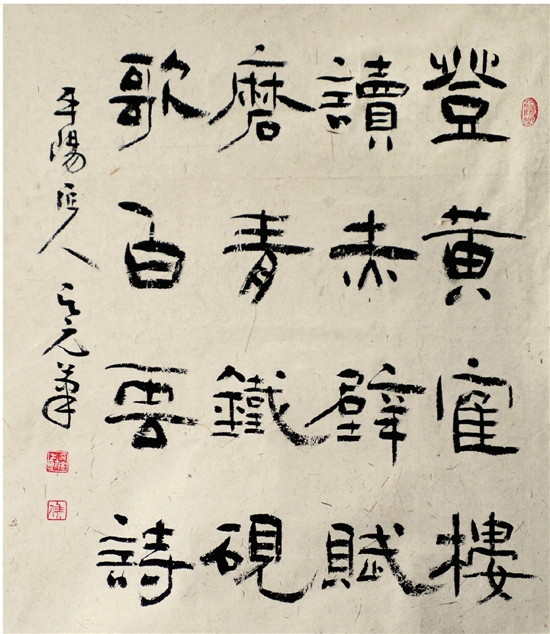 登黃隺樓
讀赤壁賦
磨青鐵硯
歌白雲詩
平陽匠人 元筆